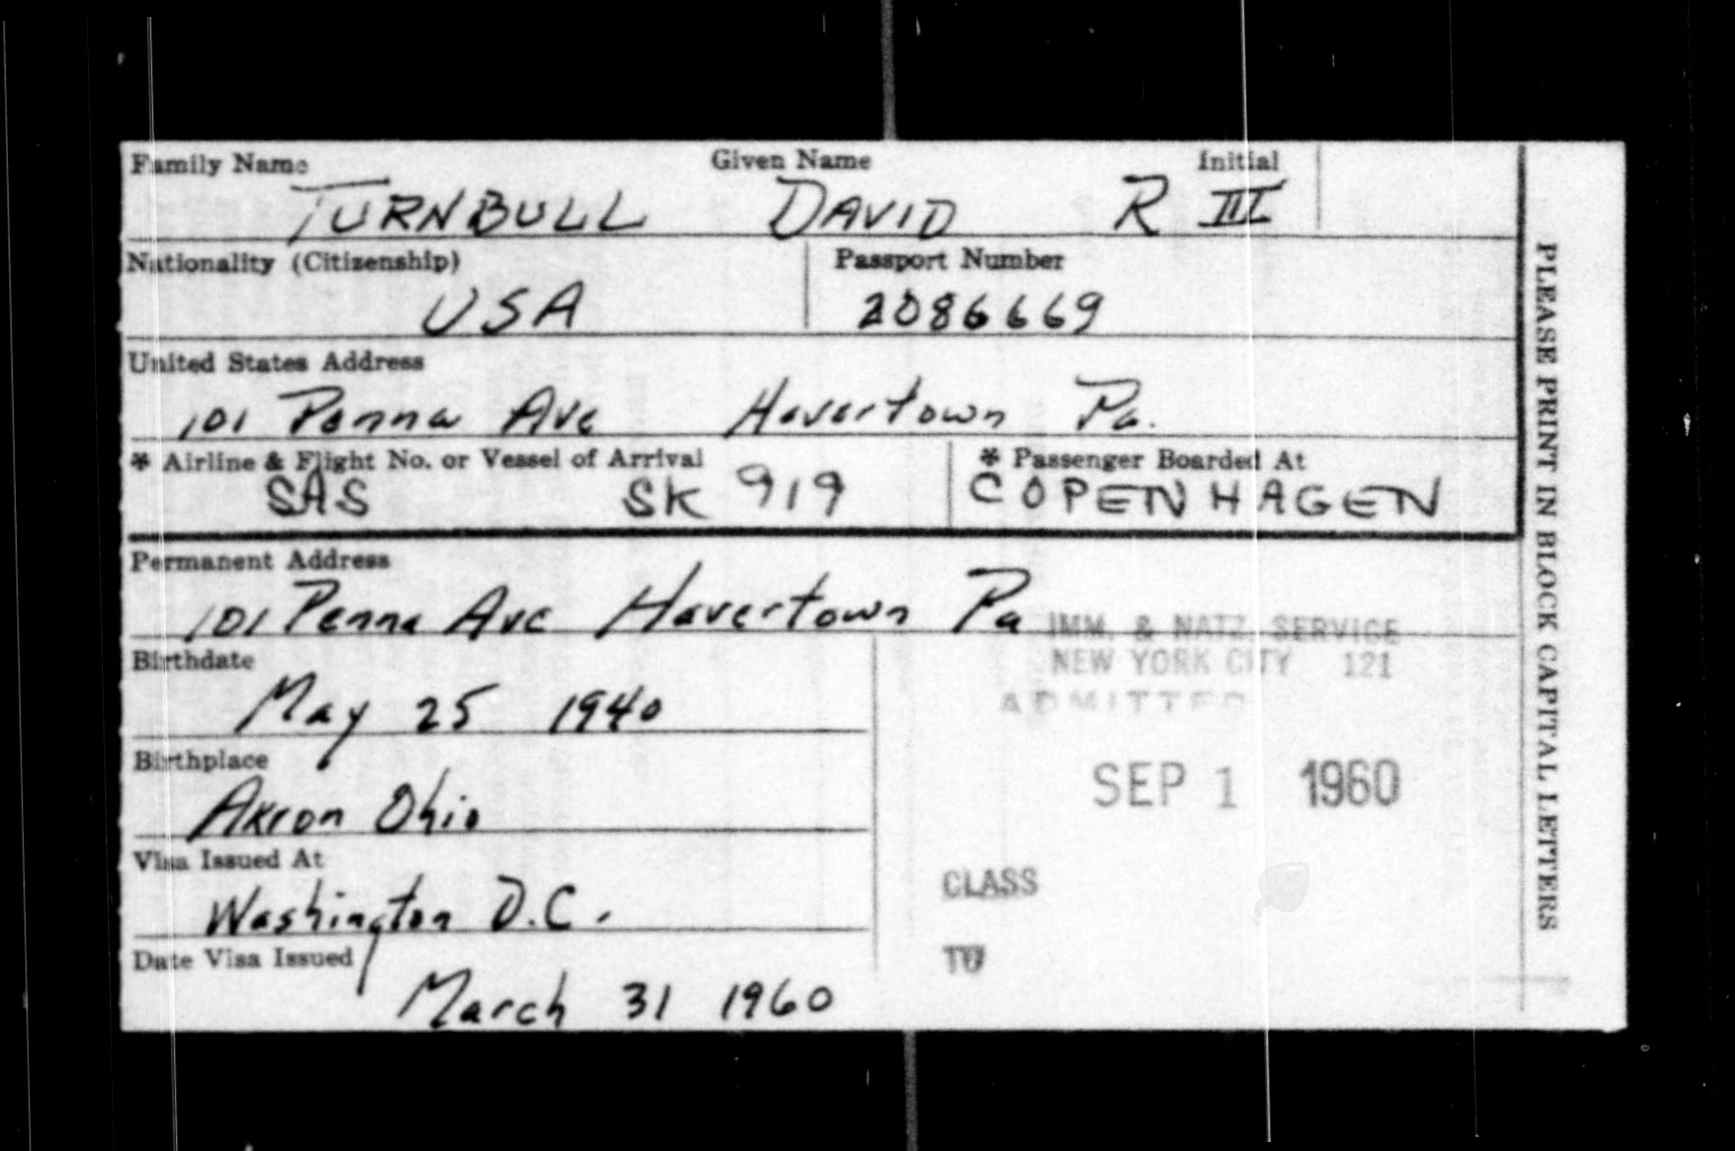 Family Name Given Name Initial
TURNBULL DAVID R III
Nationality (Citizenship) Passport Number
USA 2086669
United States Address
101 Penna Ave Havertown Pa.
* Airline & Flight No. or Vessel of Arrival * Passenger Boarded At
SAS SK 919 COPENHAGEN
Permanent Address
101 Penna Ave Havertown Pa
IMM. & NATZ. SERVICE
NEW YORK CITY 121
ADMITTED
SEP 1 1960
CLASS
TO
Birthdate
May 25 1940
Birthplace
Akron Ohio
Visa Issued At
Washington D.C.
Date Visa Issued
March 31 1960
PLEASE PRINT IN BLOCK CAPITAL LETTERS